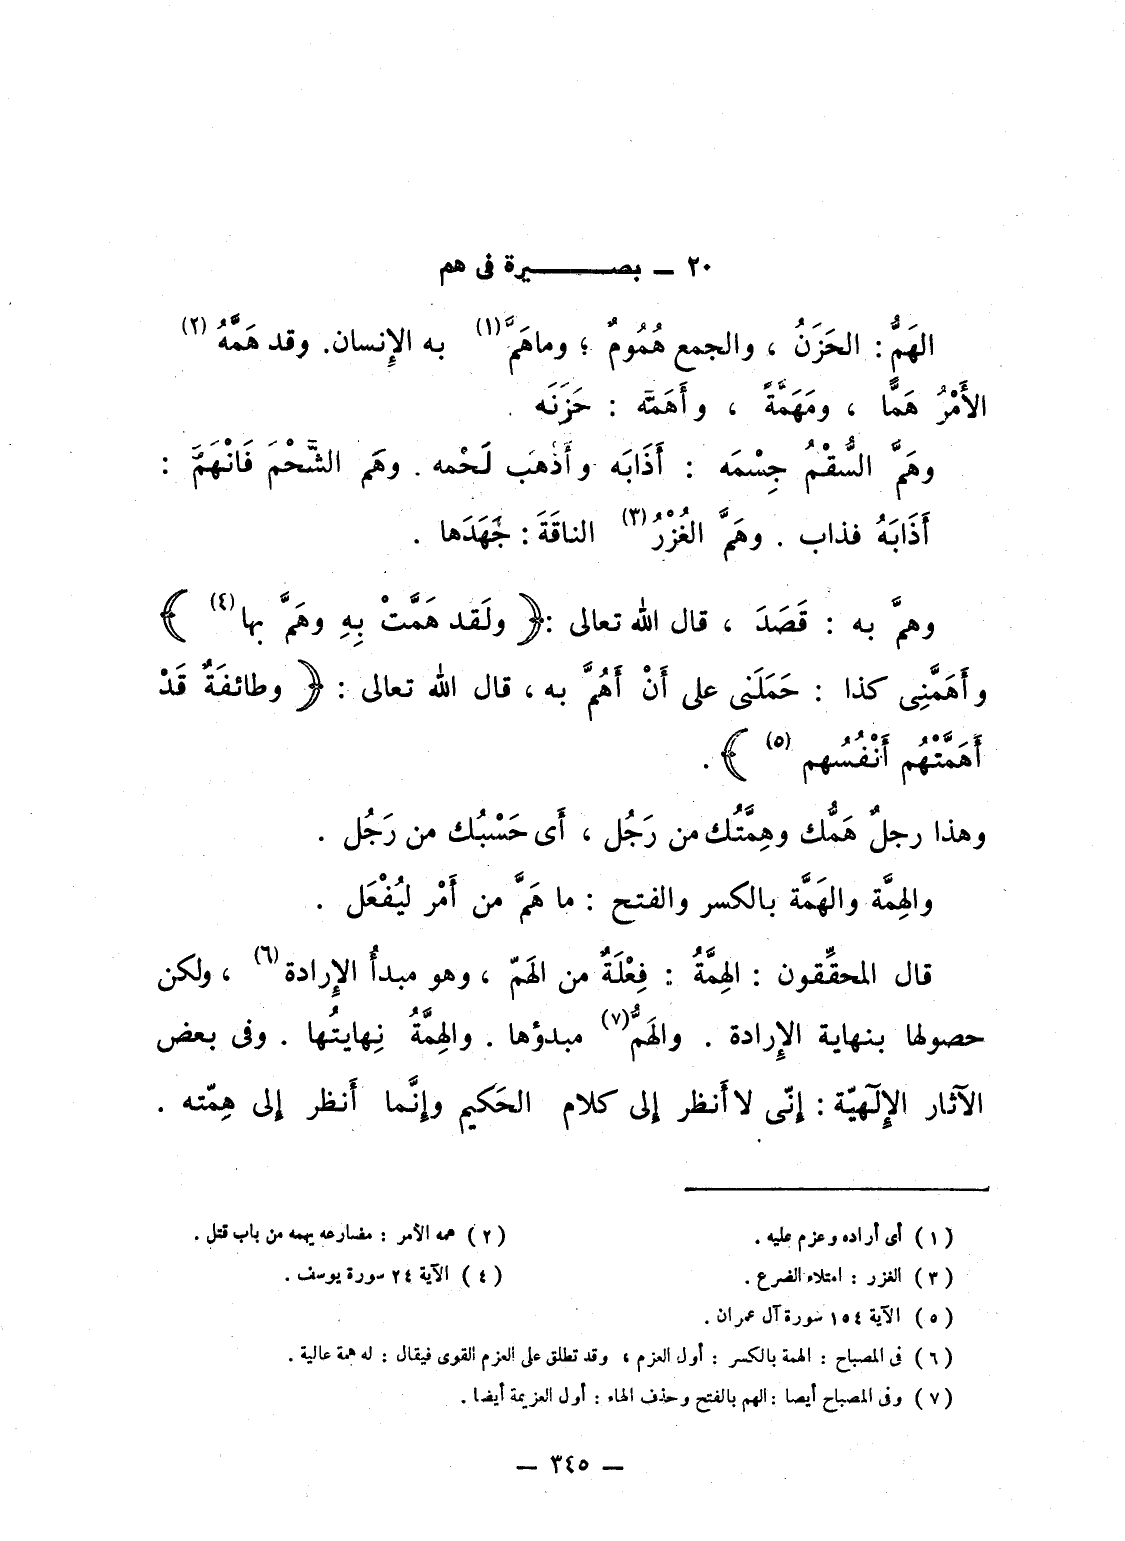 ٢٠ ـ بصــــــــيرة فى هم
الهَمُّ : الحَزَنُ ، والجمع هُمُومٌ ؛ وماهَمَّ (١) به الإِنسان. وقد هَمَّهُ (٢)
الأَمْرُ هَمًّا ، ومَهَمَّةً ، وأَهَمَّه : حَزَنَه .
وهَمَّ السُّقْمُ جِسْمَه : أَذَابَه وأَذهَب لَحْمه . وهَم الشَّحْمَ فَانْهَمَّ :
أَذَابَهُ فذاب . وهَمَّ الغُزْرُ (٣) الناقَةَ : جَهَدَها .
وهمَّ به : قَصَدَ ، قال الله تعالى :﴿ ولَقد هَمَّتْ بِهِ وهَمَّ بها (٤) ﴾
وأَهَمَّنِى كذا : حَمَلَنى على أَنْ أَهُمَّ به ، قال الله تعالى : ﴿ وطائفَةٌ قَدْ
أَهَمَّتْهُم أَنْفُسُهم (٥) ﴾ .
وهذا رجلٌ هَمُّك وهِمَّتُك من رَجُل ، أَى حَسْبُك من رَجُل .
والهِمَّة والهَمَّة بالكسر والفتح : ما هَمَّ من أَمْر ليُفْعَل .
قال المحقِّقون : الهِمَّةُ : فِعْلَةٌ من الهَمّ ، وهو مبدأُ الإِرادة (٦) ، ولكن
حصولها بنهاية الإِرادة . والهَمُّ (٧) مبدؤها . والهِمَّةُ نِهايتُها . وفى بعض
الآثار الإِلٓهيّة : إنّى لا أَنظر إلى كلام الحَكيم وإنَّما أَنظر إلى هِمّته .
(١) أى أراده وعزم عليه . (٢) همه الأمر : مضارعه يهمه من باب قتل .
(٣) الغزر : امتلاء الضرع . (٤) الآية ٢٤ سورة يوسف .
(٥) الآية ١٥٤ سورة آل عمران .
(٦) فى المصباح : الهمة بالكسر : أول العزم ، وقد تطلق على العزم القوى فيقال : له همة عالية .
(٧) وفى المصباح أيضا : الهم بالفتح وحذف الهاء : أول العزيمة أيضا .
— ٣٤٥ —